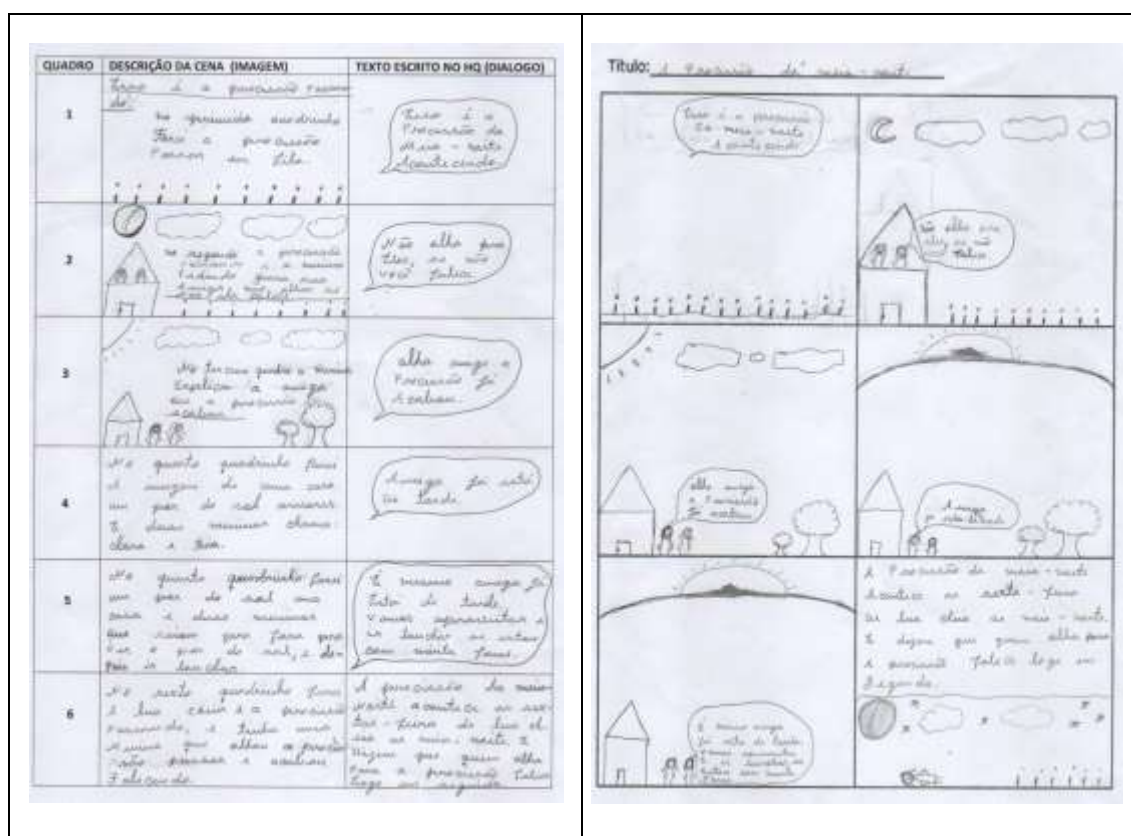 QUADRO DESCRIÇÃO DA CENA (IMAGEM) TEXTO ESCRITO NO HQ (DIALOGO)
1
Esse é a procissão
no primeiro quadrinho
a procissão
em fila.
Esse é a
Procissão da
Meia-noite
Acontecendo
2
no segundo a procissão
e a menina
para
amiga não olha
Não olha para
eles, se não
você falece
3
No terceiro quadro a
Explica a amiga
que a procissão
acabou
olha amiga a
Procissão já
Acabou
4
No quarto quadrinho
A imagem de uma casa
um por do sol
E duas meninas
Amiga já está
de tarde
5
No quinto quadrinho
um por do sol uma
casa e duas meninas
que para fora para
ver o por do sol, e de-
pois ir lanchar
E mesmo amiga já
está de tarde
vamos aproveitar e
ir lanchar
com muita fome.
6
No sexto quadrinho
A lua e a procissão
passando, e tinha uma
menina que olhou a procis
são passar e acabou
Falecendo.
A procissão da meia-
noite acontece as sex-
tas-feiras de lua
as meia-noite. E
dizem que quem olha
Para a procissão falece
logo em seguida.
Título: A Procissão da meia-noite
Esse é a procissão
da meia-noite
Acontecendo
não olha para
eles, se não
falece
olha amiga
a Procissão
já acabou
Amiga
já está de tarde
E mesmo amiga
já está de tarde
vamos aproveitar
E ir lanchar
com muita
fome
A Procissão da meia-noite
Acontece as sexta-feira
de lua as meia-noite.
E dizem que quem olha para
A procissão falece logo em
seguida.